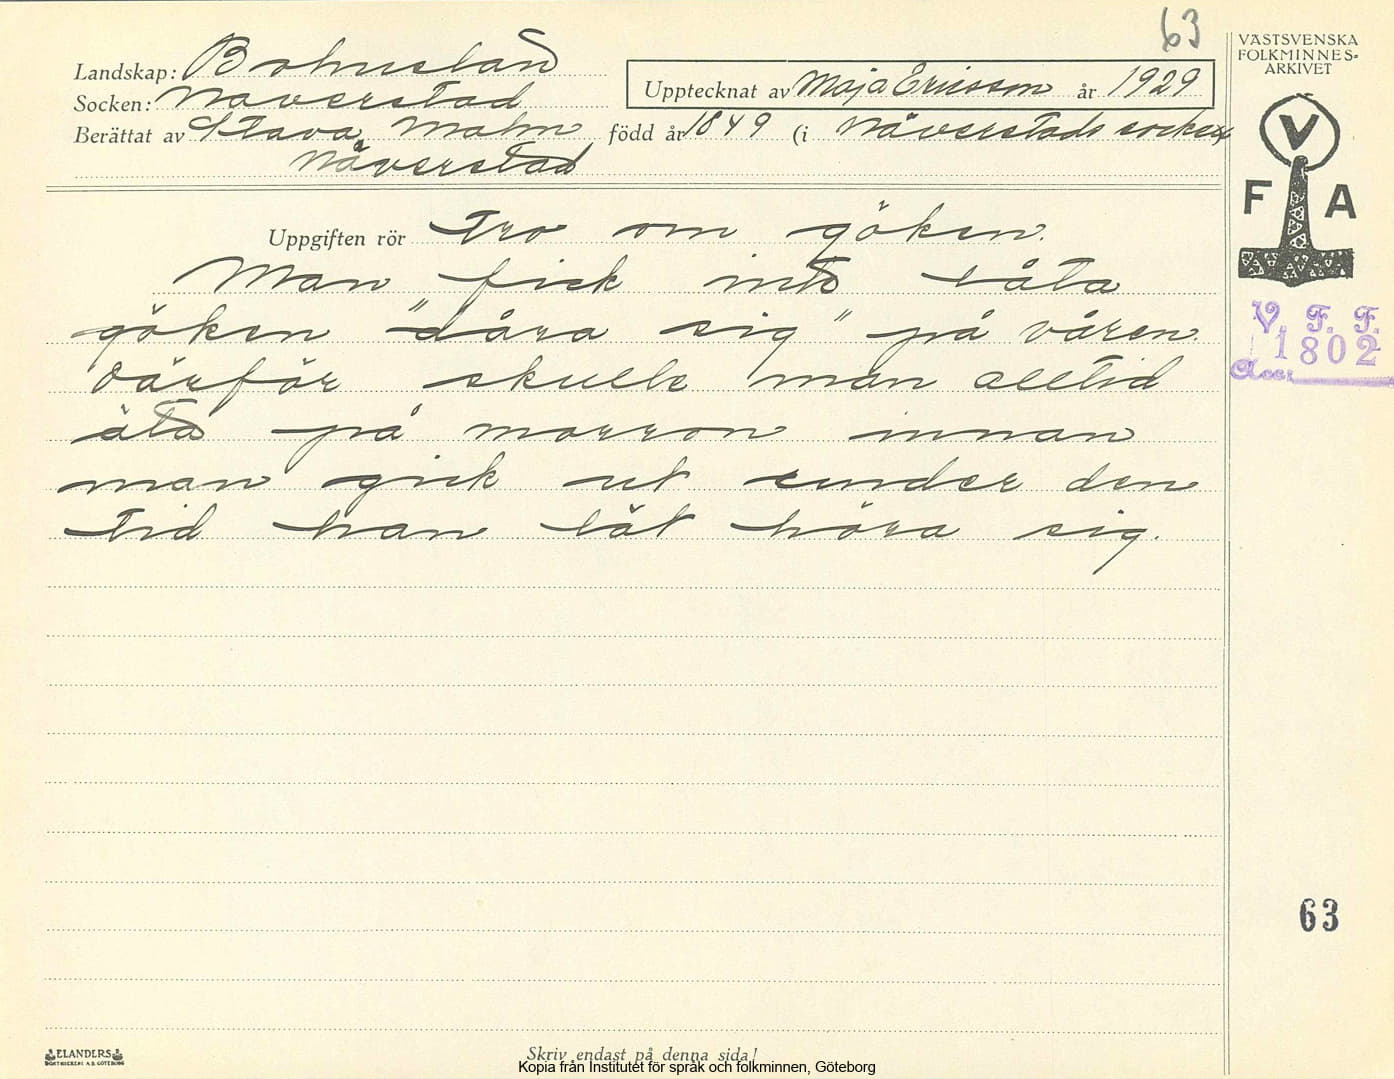 63
Landskap: Bohuslän
Socken: Naverstad
Berättat av Stava Malm
Näverstad
Upptecknat av Maja Ericsson år 1929
född år 1849 (i Näverstads socken)
VÄSTSVENSKA
FOLKMINNES-
ARKIVET
V
F A
Uppgiften rör Tro om göken.
Man fick inte låta
göken "dåra sig" på våren.
Därför skulle man alltid
äta på morron innan
man gick ut under den
tid han lät höra sig.
V. F. F.
1802
Acc:
63
ELANDERS
BOKTRYCKERI A.B. GÖTEBORG
Skriv endast på denna sida!
Kopia från Institutet för språk och folkminnen, Göteborg